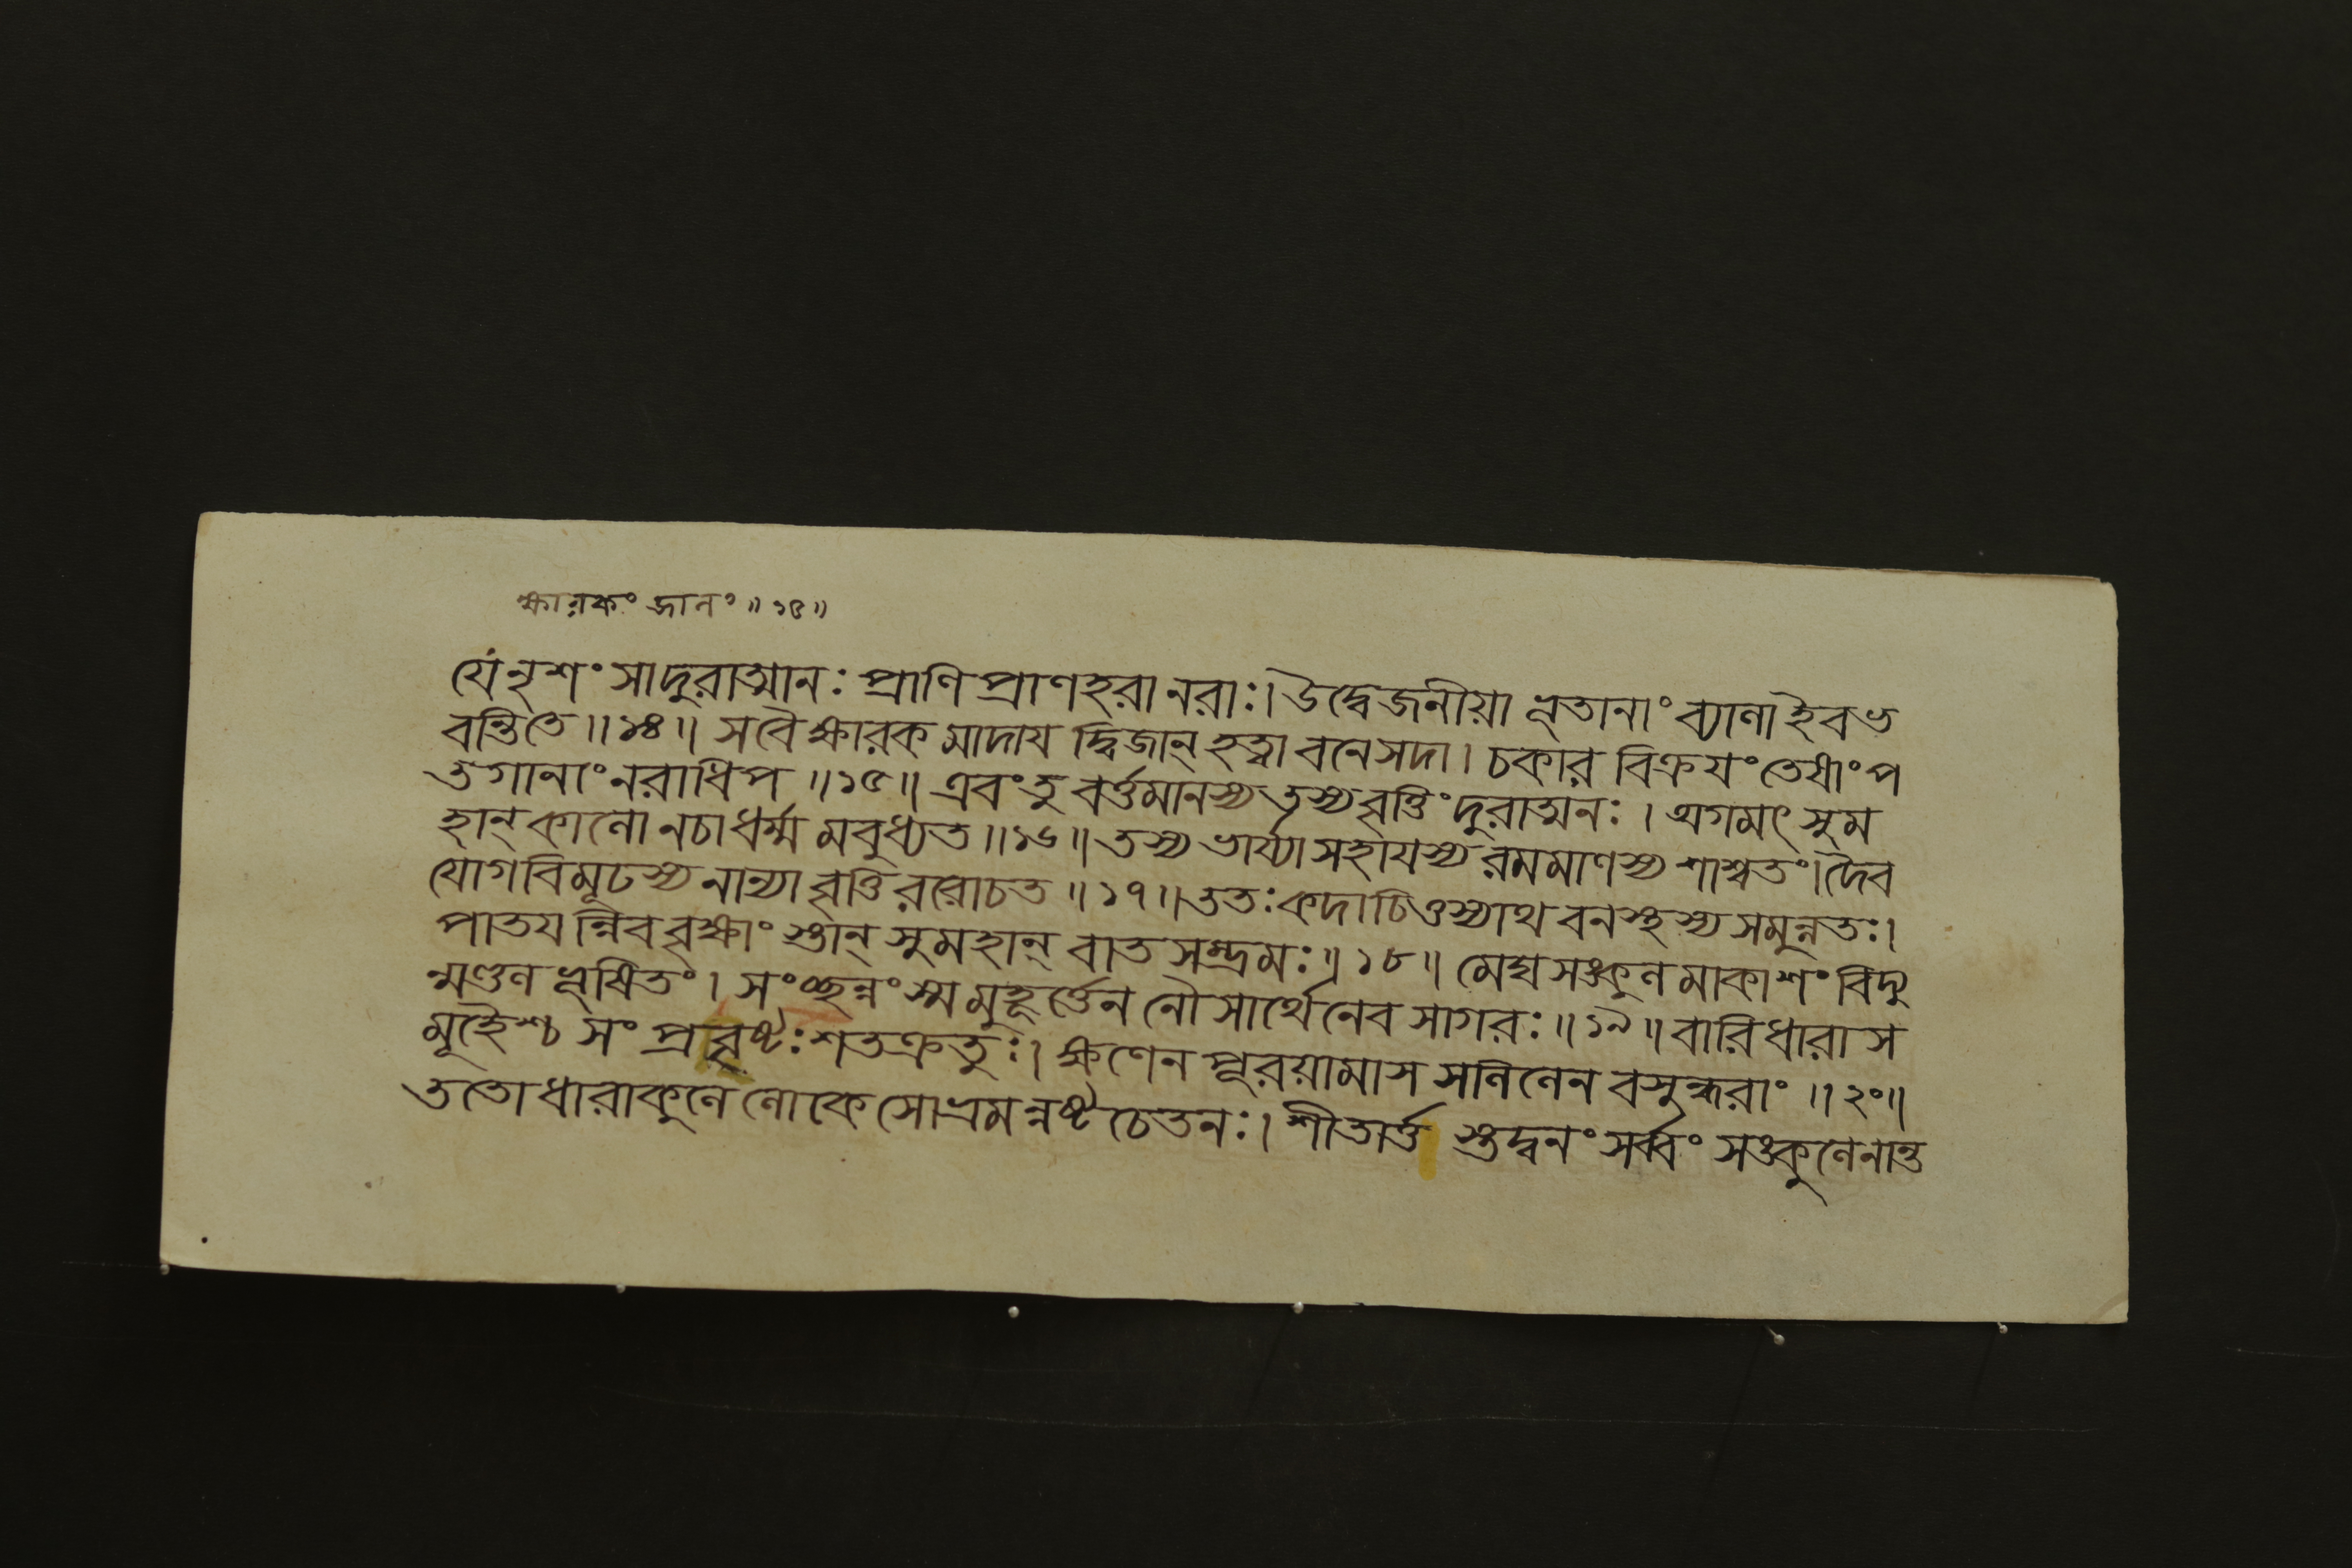 ক্ষারকং জালং॥১৫॥
যে নৃশংসাদুরাত্মানঃ প্রাণিপ্রাণহরানরাঃ।উদ্বেজনীয়া ভূতানাং ব্যালাইবভ
বন্তিতে॥১৪॥ সবৈক্ষারকমাদায দ্বিজান্ হত্বা বনেসদা। চকার বিক্রযং তেষাং প
তগানাং নরাধিপ॥১৫॥ এবং তু বর্ত্তমানস্য তস্যবৃত্তিং দুরাত্মনঃ। অগমৎ সুম
হান্ কালো নচাধর্ম্মমবুধ্যত॥১৬॥ তস্য ভার্য্যাসহাযস্য রমমাণস্য শাশ্বতং।দৈব
যোগবিমূঢস্য নান্যাবৃত্তিররোচত॥১৭॥ততঃ কদাচিত্তস্যাথ বনস্থস্য সমুন্নতঃ।
পাতযন্নিববৃক্ষাংস্তান্ সুমহান্ বাতসম্ভ্রমঃ॥১৮॥ মেঘসঙ্কুলমাকাশং বিদ্যু
ন্মণ্ডলভূষিতং। সংচ্ছন্নংস্মমুহূর্ত্তেন নৌসার্থেনেব সাগরঃ॥১৯॥ বারিধারাস
মূহৈশ্চ সংপ্রবৃষ্টঃ শতক্রতুঃ। ক্ষণেন পূরয়ামাস সলিলেন বসুন্ধরাং॥২০॥
ততোধারাকুলে লোকে সোভ্রমন্নষ্টচেতনঃ। শীতার্ত্ত স্তদ্বনং সর্ব্বং সঙ্কুলেনান্ত